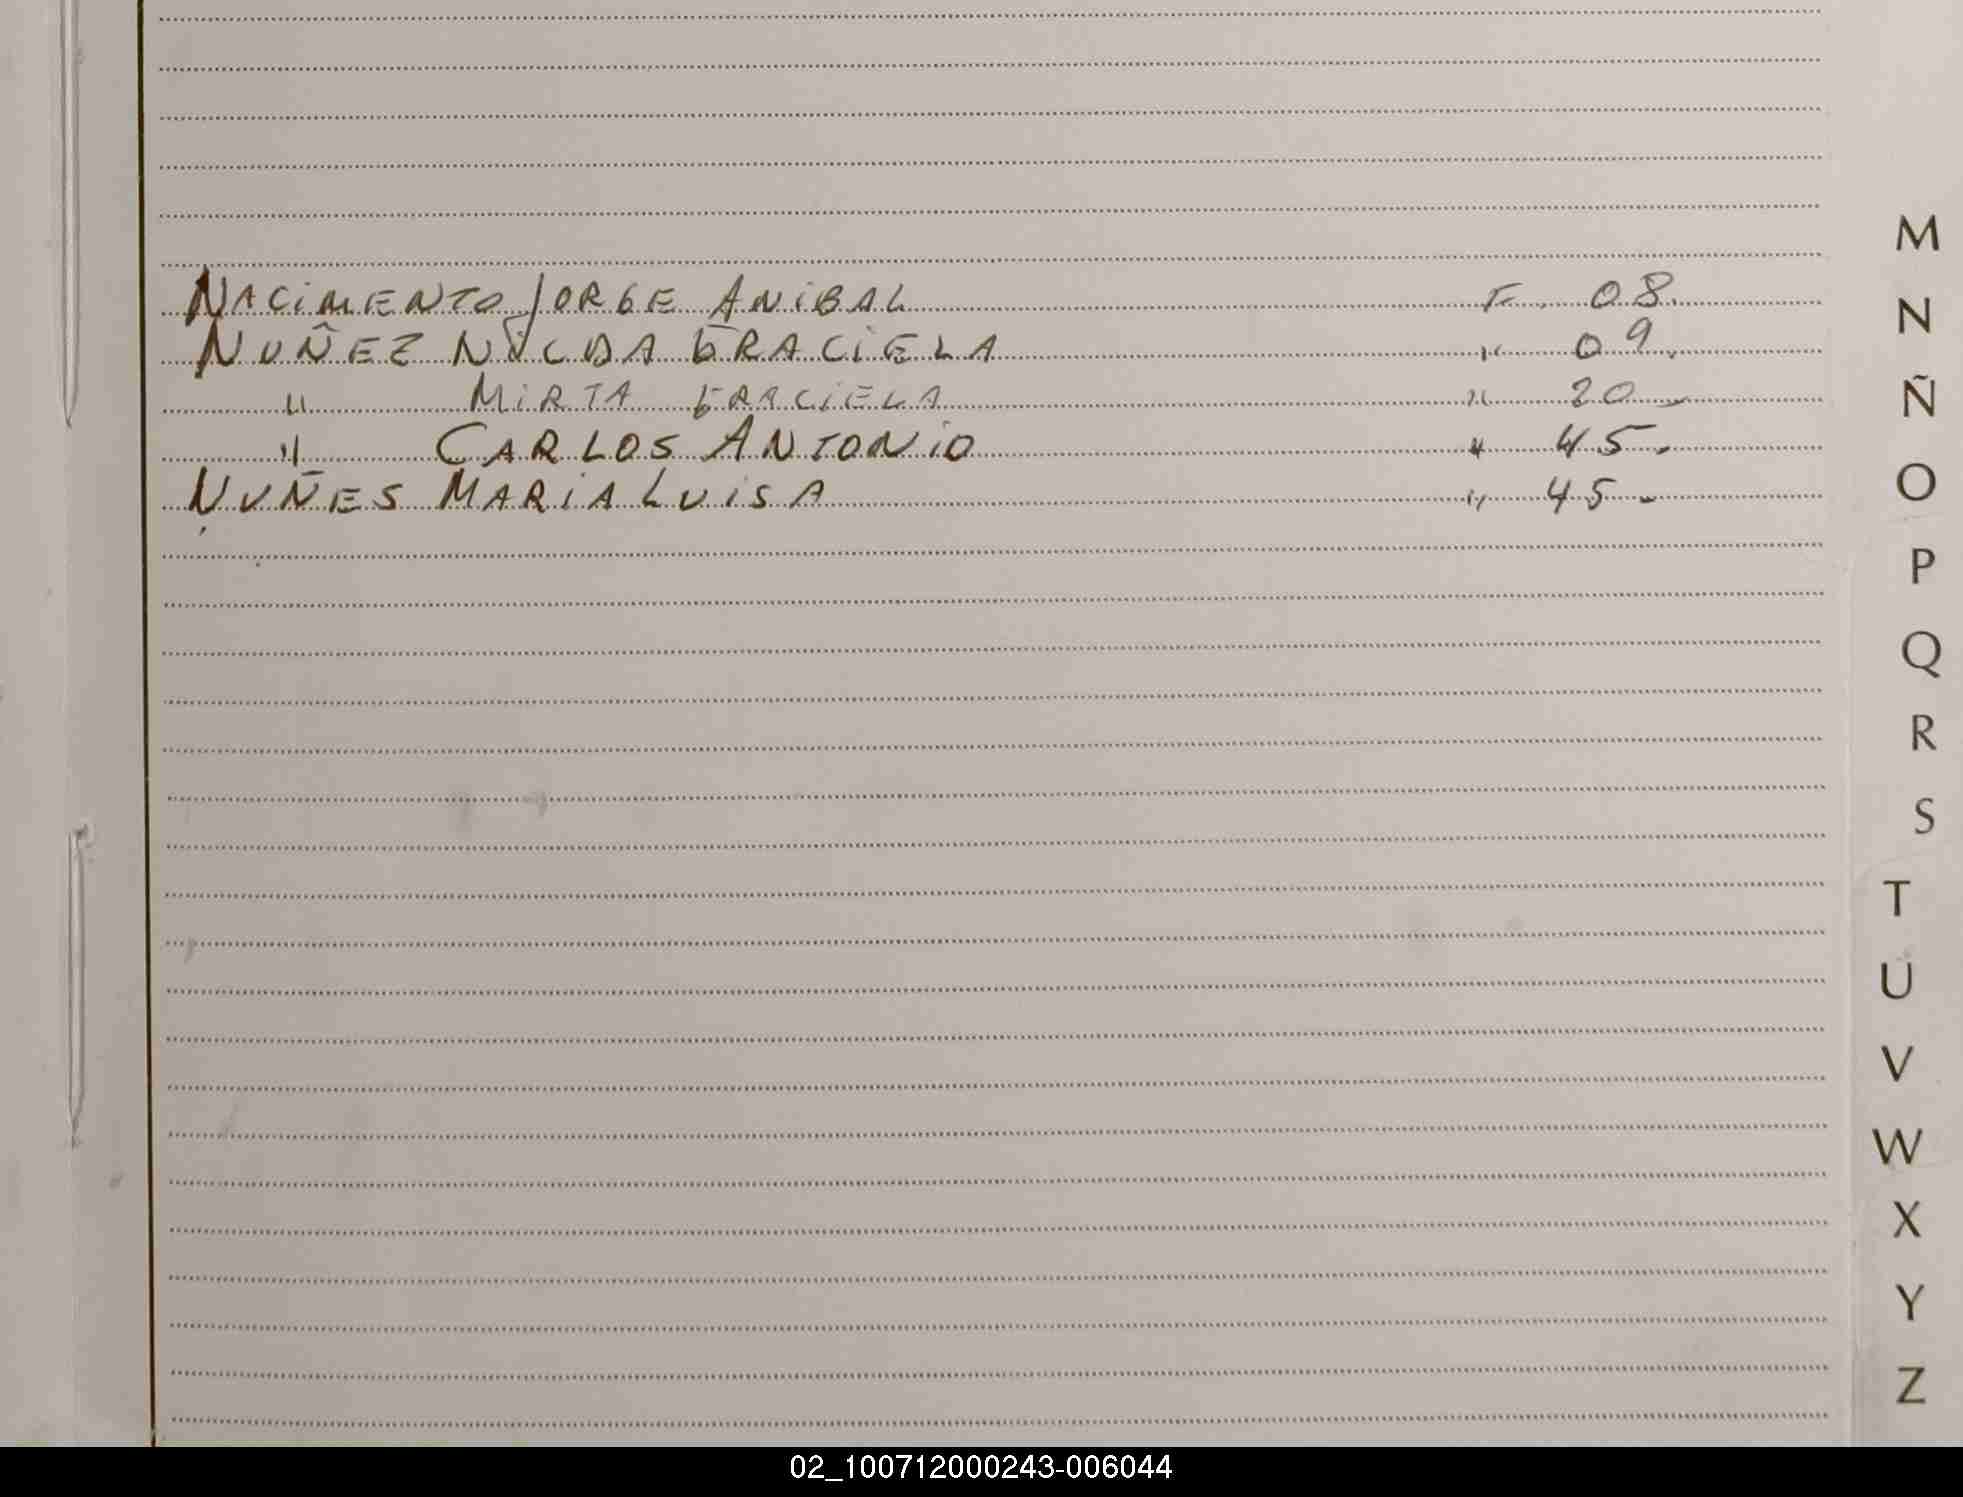 NACIMENTO JORGE ANIBAL F. 08.
NUÑEZ NILDA GRACIELA " 09.
" MIRTA GRACIELA " 20.
" CARLOS ANTONIO " 45.
NUÑES MARIA LUISA " 45.
M
N
Ñ
O
P
Q
R
S
T
U
V
W
X
Y
Z
02_100712000243-006044